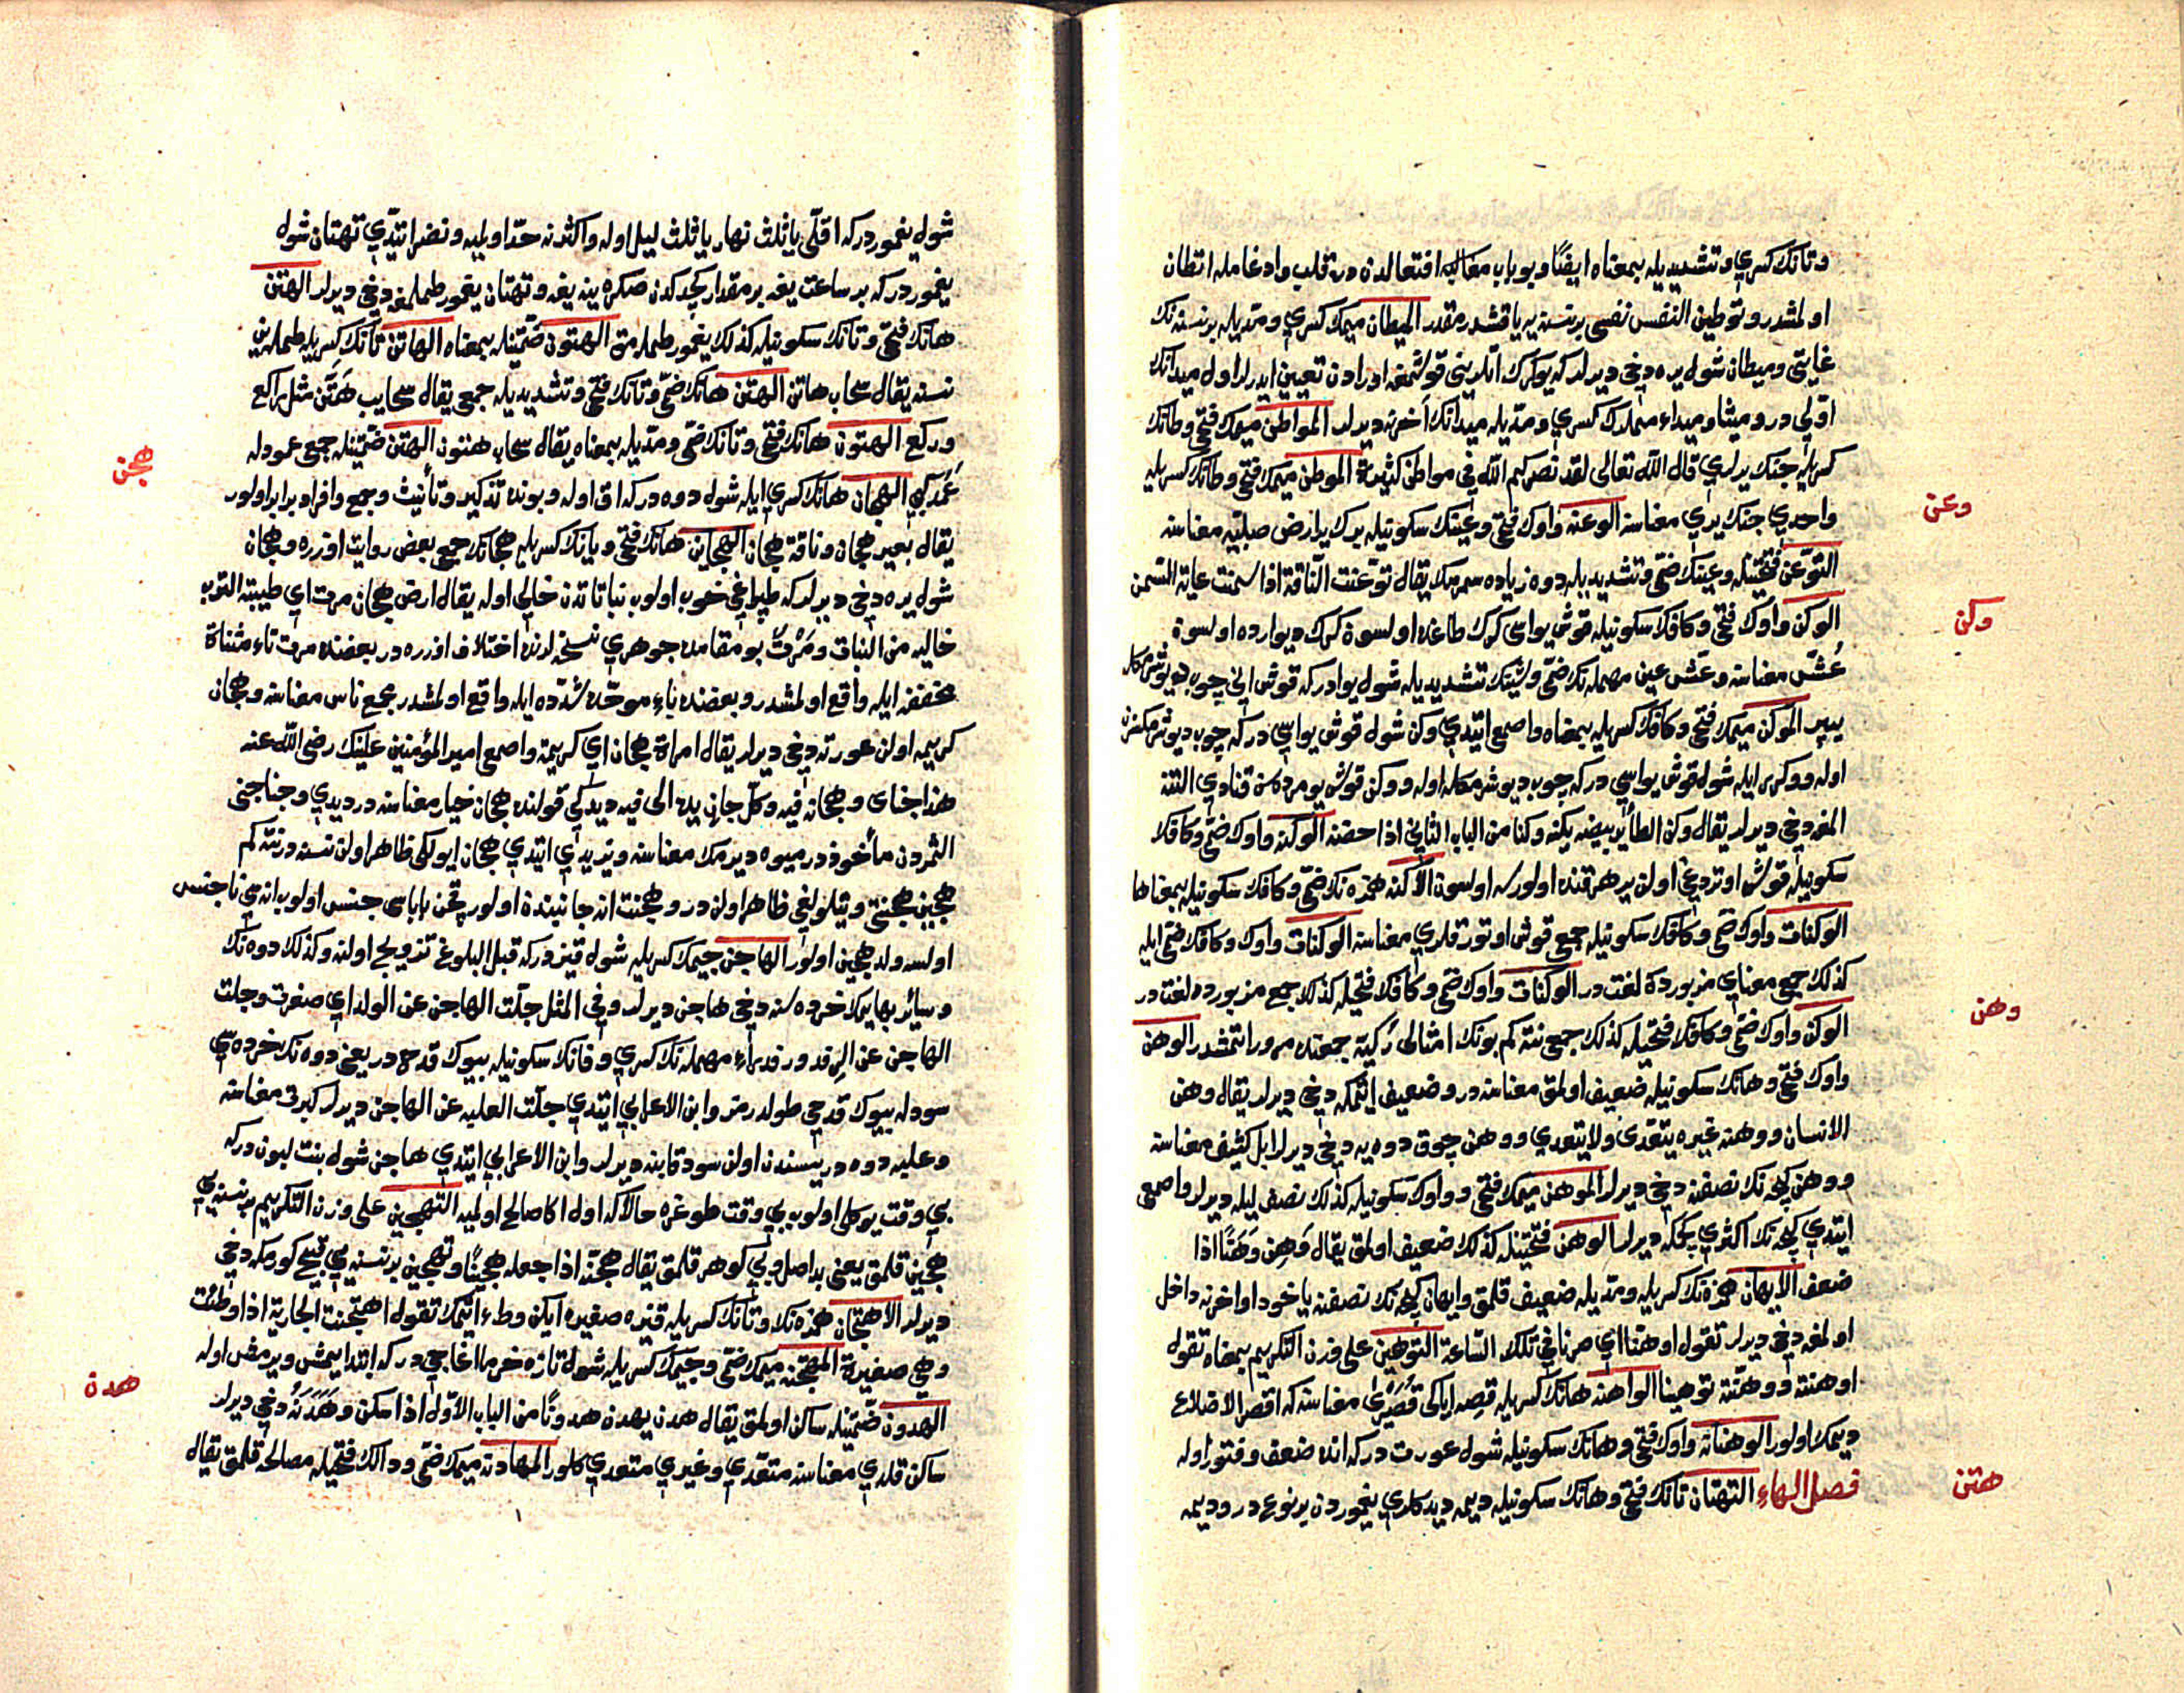 وتانك كسري وتشديديله بمعناه ايضًا وبو باب مقاله افتعالدن در قلب وادغامله اتطان
اولمشدر وتوطين النفس نفسى بر نسنه يه ياقشدرمقدر الميطان ميمك كسري ومديله بر نسنه نك
غايتى وميطان شول يره دخى ديرلر كه يوكرك اتلرينى قوشمغه اورادن تعيين ايدرلر اول ميدانك
اوّلى در وميتاء وميداء ميملرك كسري ومديله ميدانك آخرنه ديرلر المواطن ميمك فتحى وطانك
كسريله جنك يرلري قال الله تعالى لقد نصركم الله في مواطن كثيرة الموطن ميمك فتحى وطانك كسريله
واحدي جنك يري معناسنه الوعنه واوك فتحى وعينك سكونيله يرك يرا رض صلبيه معناسنه
وعن
التوعن فتحتينله وعينك ضمى وتشديديله دوه زياده سمرمك يقال توعّنت الناقة اذا سمنت غاية السمن
الوكن واوك فتحى وكافك سكونيله قوش يواسى كرك طاغده اولسون كرك ديوارده اولسون
وكن
عُشّ معناسنه وعُشّ عين مهمله نك ضمى وشينك تشديديله شول يوادركه قوش انى چوب ديوشرمكله
يپر الموكن ميمك فتحى وكافك كسريله بمعناه واصمعى ايتدي وكن شول قوش يواسى در كه چوب ديوشرمكسزن
اوله ووكر را ايله شول قوش يواسى در كه چوب ديوشرمكله اوله ووكن قوش يومرده سن قنادي التنه
المغه دخى ديرلر يقال وكن الطائر بيضه يكنه وكنا من الباب الثاني اذا حضنه الوكنه واوك ضمى وكافك
سكونيله قوش اوتردغى اولن ير هر قنده اولورسه اولسون الاكنه همزه نك ضمى وكافك سكونيله بمعناها
الوكنات واوك ضمى وكافك سكونيله جمعى قوش اوتورقلري معناسنه الوكنات واوك وكافك فتحى ايله
كذلك جمع معناي مزبورده لغت در الوكنات واوك ضمى وكافك فتحيله كذلك جمع مزبورده لغت در
الوكن واوك ضمى وكافك فتحيله كذلك جمع نته كم بونك امثالى ركبة جمعنده مرور ايتمشدر الوهن
وهن
واوك فتحى وهانك سكونيله ضعيف اولمق معناسنه در وضعيف ايتمكه دخى ديرلر يقال وهن
الانسان ووهنه غيره يتعدى ولا يتعدي ووهن چوق دوه يه دخى ديرلر ابل كثيف معناسنه
ووهن كيجه نك نصفنه دخى ديرلر الموهن ميمك فتحى وواوك سكونيله كذلك نصف ليله ديرلر واصمعى
ايتدي كيجه نك اكثري كچمكه ديرلر الوهن فتحتينله كذلك ضعيف اولمق يقال وَهِن وَهَنًا اذا
ضعف الايهان همزه نك كسريله ومديله ضعيف قلمق وايهان كيجه نك نصفنه ياخود اواخرنه داخل
اولمغه دخى ديرلر تقول اوهنا اي صرنا في تلك الساعة التوهين على وزن التكريم بمعناه تقول
اوهنته ووهنته توهينا الواهنه هانك كسريله قصه اياكى قُصَيري معناسنه كه اقصر الاضلاع
ديمك اولور الوهنانه واوك فتحى وهانك سكونيله شول عورت دركه انده ضعف وفتور اوله
فصل الهاء التهتان تانك فتحى وهانك سكونيله ديمه ديدكلري يغموردن بر نوعدر وديمه
هتن
شول يغموردركه اقلّى يا ثلث نهار يا ثلث ليل اوله واكثرنه حدّ اولميه ونضر ايتدي تهتان شول
يغموردركه بر ساعت يغه بر مقدار كچدكدن صكره ينه يغه وتهتان يغمور طملمغه دخى ديرلر الهتن
هانك فتحى وتانك سكونيله كذلك يغمور طملمق الهتون ضمتينله بمعناه الهاتن تانك كسريله طملين
نسنه يقال سحاب هاتن الهتن هانك ضمى وتانك فتحى وتشديديله جمعى يقال سحايب هُتَّن مثل راكع
وركع الهتون هانك فتحى وتانك ضمى ومديله بمعناه يقال سحاب هتون الهتن ضمتينله جمعى عموده
عُمُد كبي الهجان هانك كسري ايله شول دوه دركه اق اوله وبونده تذكير وتأنيث وجمع وافراد برابر اولور
هجن
يقال بعير هجان وناقة هجان الهجاين هانك فتحى ويانك كسريله هجانك جمعى بعض روايت اوزره وهجان
شول يره دخى ديرلر كه طپراغى خوب اولوب نباتاتدن خالى اوله يقال ارض هجان مرت اي طيبة الترب
خاليه من النبات ومَرْتُ بو مقامده جوهري نسخه لرنده اختلاف اوزره در بعضنده مرت تاء مثناة
مخففه ايله واقع اولمشدر وبعضنده باء موحّده مشدّده ايله واقع اولمشدر مجمع ناس معناسنه وهجان
كريمه اولن عورته دخى ديرلر يقال امراة هجان اي كريمة واصمعى امير المؤمنين علينك رضى الله عنه
هذا جناى وهجانه فيه وكلّ جان يده الى فيه ديدكى قولنده هجان خيار معناسنه در ديدي وجنا جنى
الثمردن مأخوذدر ميوه ديرمك معناسنه ويزيدي ايتدي هجان ايولكى ظاهر اولن نسنه در نته كم
هجين هجنتى ويتلولغى ظاهر اولن در وهجنت انه جانبنده اولور چن باباسى جنس اولوب اناسى ناجنس
اولسه ولد هجين اولور الهاجن جيمك كسريله شول قيزدركه قبل البلوغ تزويج اولنه وكذلك دوه نك
وسائر بهايمك خرده سنه دخى هاجن ديرلر وفي المثل جلّت الهاجن عن الولد اي صغرت وجلت
الهاجن عن الرفد ورفد راء مهمله نك كسري وفانك سكونيله بيوك قدح در يعنى دوه نك خرده سى
سودله بيوك قدحى طولدرمز وابن الاعرابي ايتدي جلّت العلبه عن الهاجن ديرلر كبرت معناسنه
وعلبه دوه دريسندن اولن سود قابنه ديرلر وابن الاعرابي ايتدي هاجن شول بنت لبون دركه
بي وقت يوكلو اولوب بي وقت طوغره حالاكه اول اكا صالح اولميه التهجين على وزن التكريم بر نسنه يي
هجين قلمق يعنى بد اصل وبى كوهر قلمق يقال هجّنه اذا جعله هجينًا وتهجين بر نسنه يي قبيح كورمكه دخى
ديرلر الاهتجان همزه نك وتانك كسريله قيزه صغيره ايكن وطء ايتمك تقول اهتجنت الجارية اذا وطئت
وهي صغيرة المهتجنه ميمك ضمى وجيمك كسريله شول تازه خرما اغاجى دركه ابتدا يمش ويرمش اوله
الهدون ضمتينله ساكن اولمق يقال هدن يهدن هدونًا من الباب الاوّل اذا سكن وهَدَنَهُ دخى ديرلر
همدن
ساكن قلدي معناسنه متعدي وغيري متعدي كلور المهادنه ميمك ضمى ودالك فتحيله مصالحه قلمق يقال